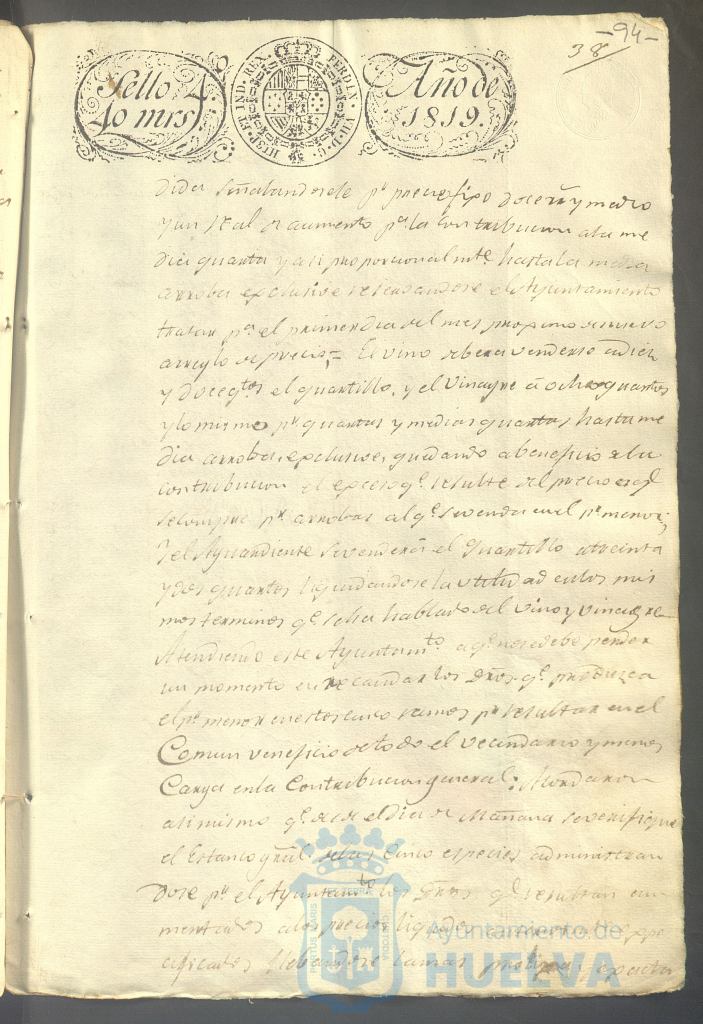 -94-
38
Sello 4.º
40 mrs.
HISP. ET IND. REX. FERDIN. VII. D. G.
Año de
1819.
dida señalandosele pr precio fijo doce rs y medio
y un real de aumento pa la contribucion a la me
dia quarta y asi proporcionalmte hasta la media
arroba exclusive reservandose el Ayuntamiento
tratar pa el primer dia del mes proximo de nuevo
arreglo de precio = El vino debera venderse a diez
y doce qtos el quartillo, y el vinagre à ocho quartos
y lo mismo pr quartas y medias quartas hasta me
dia arroba exclusive, quedando a beneficio de la
contribucion el exceso qe resulte del precio
se compre pr arrobas al qe se venda en el pr menor;
Y el Aguardiente se venderá el quartillo a treinta
y dos quartos liquidandose la utilidad en los mis
mos terminos qe se ha hablado del vino y vinagre
Atendiendo este Ayuntamto a qe no se debe perder
un momento en recaudar los dros qe produzca
el pr menor en estos cinco ramos pr resultar en el
Comun veneficio de todo el vecindario y menos
Carga en la Contribucion general: Mandaron
asimismo qe desde el dia de Mañana se verifique
el Estanco gral de las cinco especies administran
dose pr el Ayuntamto los dros qe resultan au
mentados a los precios
llebandose exacta
PORTUS MARIS
ET TERRAE
CUSTODIA
Ayuntamiento de
HUELVA